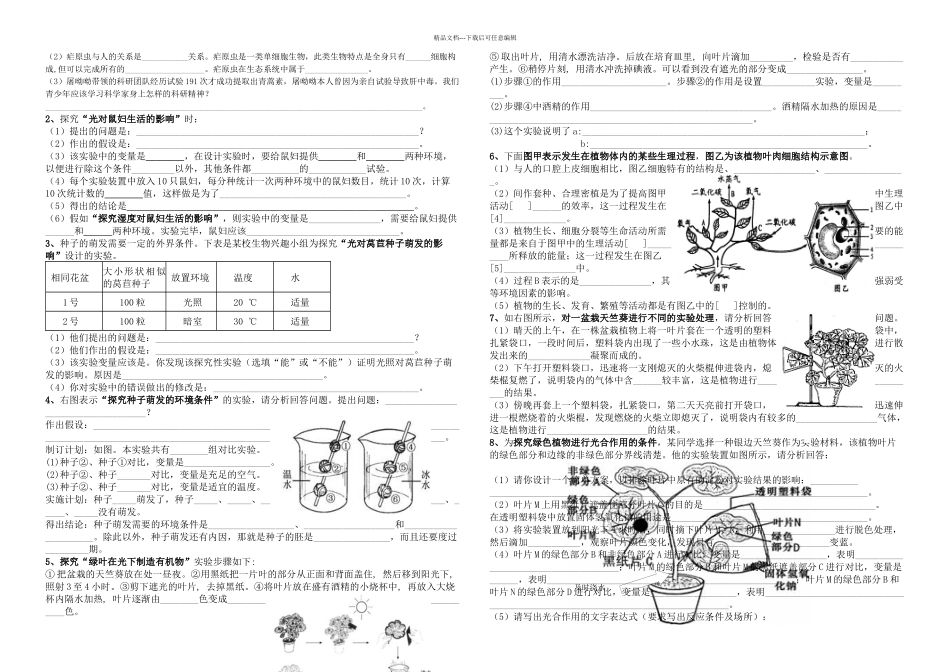 精品文档---下载后可任意编辑
（2）疟原虫与人的关系是________关系。疟原虫是一类单细胞生物，此类生物特点是全身只有______细胞构
成,但可以完成所有的________________。疟原虫在生态系统中属于____________。
（3）屠呦呦带领的科研团队经历试验191次才成功提取出青蒿素，屠呦呦本人曾因为亲自试验导致肝中毒。我们
青少年应该学习科学家身上怎样的科研精神？
________________________________________________________________。
2、探究“光对鼠妇生活的影响”时：
（1）提出的问题是：________________________________________________？
（2）作出的假设是：________________________________________________。
（3）该实验中的变量是________，在设计实验时，要给鼠妇提供________和________两种环境，
以便进行除这个条件________以外，其他条件都________的________试验。
（4）每个实验装置中放入10只鼠妇，每分种统计一次两种环境中的鼠妇数目，统计10次，计算
10次统计数的________值，这样做是为了________________________________。
（5）得出的结论是________________________________________________。
（6）假如“探究湿度对鼠妇生活的影响”，则实验中的变量是____________，需要给鼠妇提供
______和______两种环境。实验完毕，鼠妇应该____________________________。
3、种子的萌发需要一定的外界条件。下表是某校生物兴趣小组为探究“光对莴苣种子萌发的影
响”设计的实验。
相同花盆 大小形状相似的莴苣种子 放置环境 温度 水
1号 100粒 光照 20 ℃ 适量
2号 100粒 暗室 30 ℃ 适量
（1）他们提出的问题是：________________________________________________？
（2）他们作出的假设是：________________________________________________。
（3）该实验变量应该是。你发现该探究性实验（选填“能”或“不能”）证明光照对莴苣种子萌
发的影响。原因是________________________________。
（4）你对实验中的错误做出的修改是：________________________________________。
4、右图表示“探究种子萌发的环境条件”的实验，请分析回答问题。提出问题：____________
____________________？
作出假设：________________________________
________________________________。
制订计划：如图。本实验共有________组对比实验。
(1)种子②、种子①对比，变量是________________。
(2)种子②、种子______对比，变量是充足的空气。
(3)种子②、种子______对比，变量是适宜的温度。
实施计划：种子____萌发了，种子____、____、____、
____、____没有萌发。
得出结论：种子萌发需要的环境条件是________________、________________和________
________。除此以外，种子萌发还有内因，那就是种子的胚是______________，而且还要度过
________期。
温水
冰水
①
②
③
④
⑤
⑥
5、探究“绿叶在光下制造有机物”实验步骤如下:
① 把盆栽的天竺葵放在处一昼夜。②用黑纸把一片叶的部分从正面和背面盖住, 然后移到阳光下,
照射3至4小时。③剪下遮光的叶片, 去掉黑纸。④将叶片放在盛有酒精的小烧杯中, 再放入大烧
杯内隔水加热, 叶片逐渐由________色变成________
____色。
⑤取出叶片, 用清水漂洗洁净。后放在培育皿里, 向叶片滴加________, 检验是否有________
产生。⑥稍停片刻, 用清水冲洗掉碘液。可以看到没有遮光的部分变成______________。
(1)步骤①的作用____________________。步骤②的作用是设置__________实验, 变量是______
____。
(2)步骤④中酒精的作用________________________________。酒精隔水加热的原因是______
________________________________________________。
(3)这个实验说明了a:________________________________________________;
b:________________________________________________。
6、下面图甲表示发生在植物体内的某些生理过程，图乙为该植物叶肉细胞结构示意图。
（1）与人的口腔上皮细胞相比，图乙细胞特有的结构是、______________、______________
____。
（2）间作套种、合理密植是为了提高图甲中生理
活动[　]______的效率，这一过程发生在图乙中
[4]____________。
（3）植物生长、细胞分裂等生命活动所需要的能
量都是来自于图甲中的生理活动[　]______
______所释放的能量；这一过程发生在图乙
[5]____________中。
（4）过程B表示的是______________，其强弱受
等环境因素的影响。
（5）植物的生长、发育、繁殖等活动都是有图乙中的[　]控制的。
水蒸气
二氧化碳
氧气
氧气
二氧化碳
A
B
C
图甲
1
2
3
4
5
图乙
7、如右图所示，对一盆栽天竺葵进行不同的实验处理，请分析回答问题。
（1）晴天的上午，在一株盆栽植物上将一叶片套在一个透明的塑料袋中，
扎紧袋口，一段时间后，塑料袋内出现了一些小水珠，这是由植物体进行散
发出来的____________凝聚而成的。
（2）下午打开塑料袋口，迅速将一支刚熄灭的火柴棍伸进袋内，熄灭的火
柴棍复燃了，说明袋内的气体中含______较丰富，这是植物进行________
______的结果。
（3）傍晚再套上一个塑料袋，扎紧袋口，第二天天亮前打开袋口，迅速伸
进一根燃烧着的火柴棍，发现燃烧的火柴立即熄灭了，说明袋内有较多的______________气体，
这是植物进行__________________的结果。
8、为探究绿色植物进行光合作用的条件，某同学选择一种银边天竺葵作为实验材料，该植物叶片
的绿色部分和边缘的非绿色部分界线清楚。他的实验装置如图所示，请分析回答：
（5）请写出光合作用的文字表达式（要求写出反应条件及场所）：
非绿色部分A
绿色部分B
黑纸片C
透明塑料袋
叶片N
绿色部分D
固体氢氧化钠